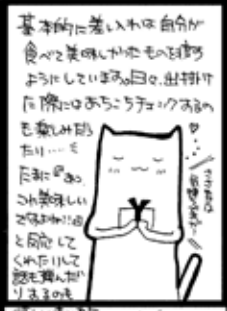 基本的に差し入れは自分が
食べて美味しかったものを贈る
ようにしています。日々、出掛け
た際にはあちこちチェックするの
も楽しみだっ
たり……
たまに『あっ
これ美味しい
ですよね!!』
と反応して
くれたりして
話も弾んだ
りするのも